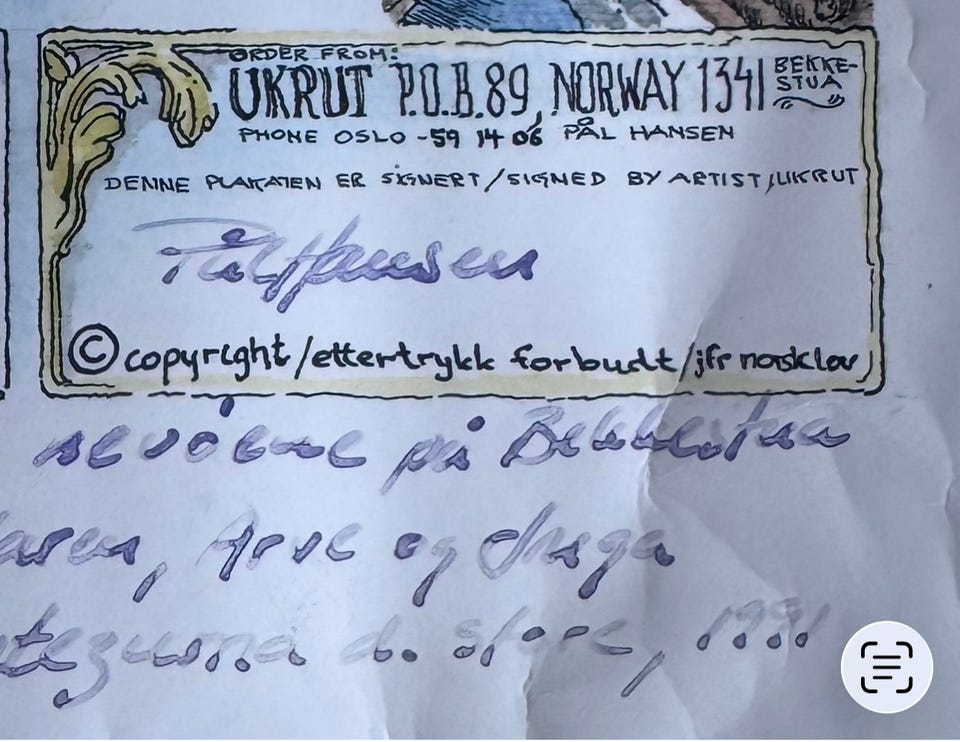 ORDER FROM:
UKRUT P.O.B. 89, NORWAY 1341 BEKKE-
STUA
PHONE OSLO -59 14 06 PÅL HANSEN
DENNE PLAKATEN ER SIGNERT/SIGNED BY ARTIST, UKRUT
Pål Hansen
© copyright/ettertrykk forbudt/jfr norsk lov
på Bekkestua
, Arve og Inga
d. store, 1991